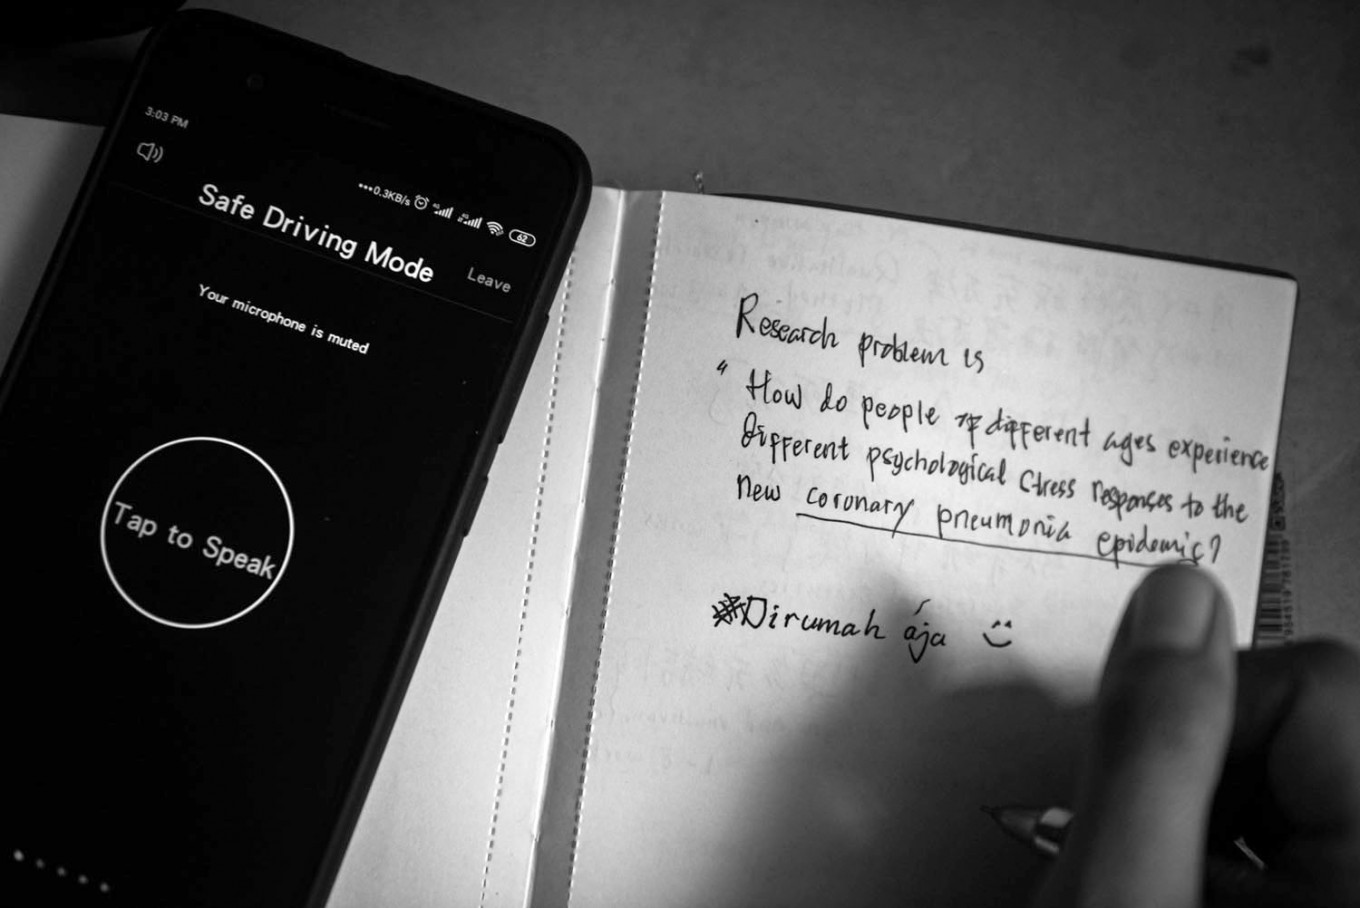 3:03 PM
•••0.3KB/s
62
Safe Driving Mode
Leave
Your microphone is muted
Tap to Speak
Research problem is
" How do people of different ages experience
Different psychological stress responses to the
new coronary pneumonia epidemic?
#Dirumah aja